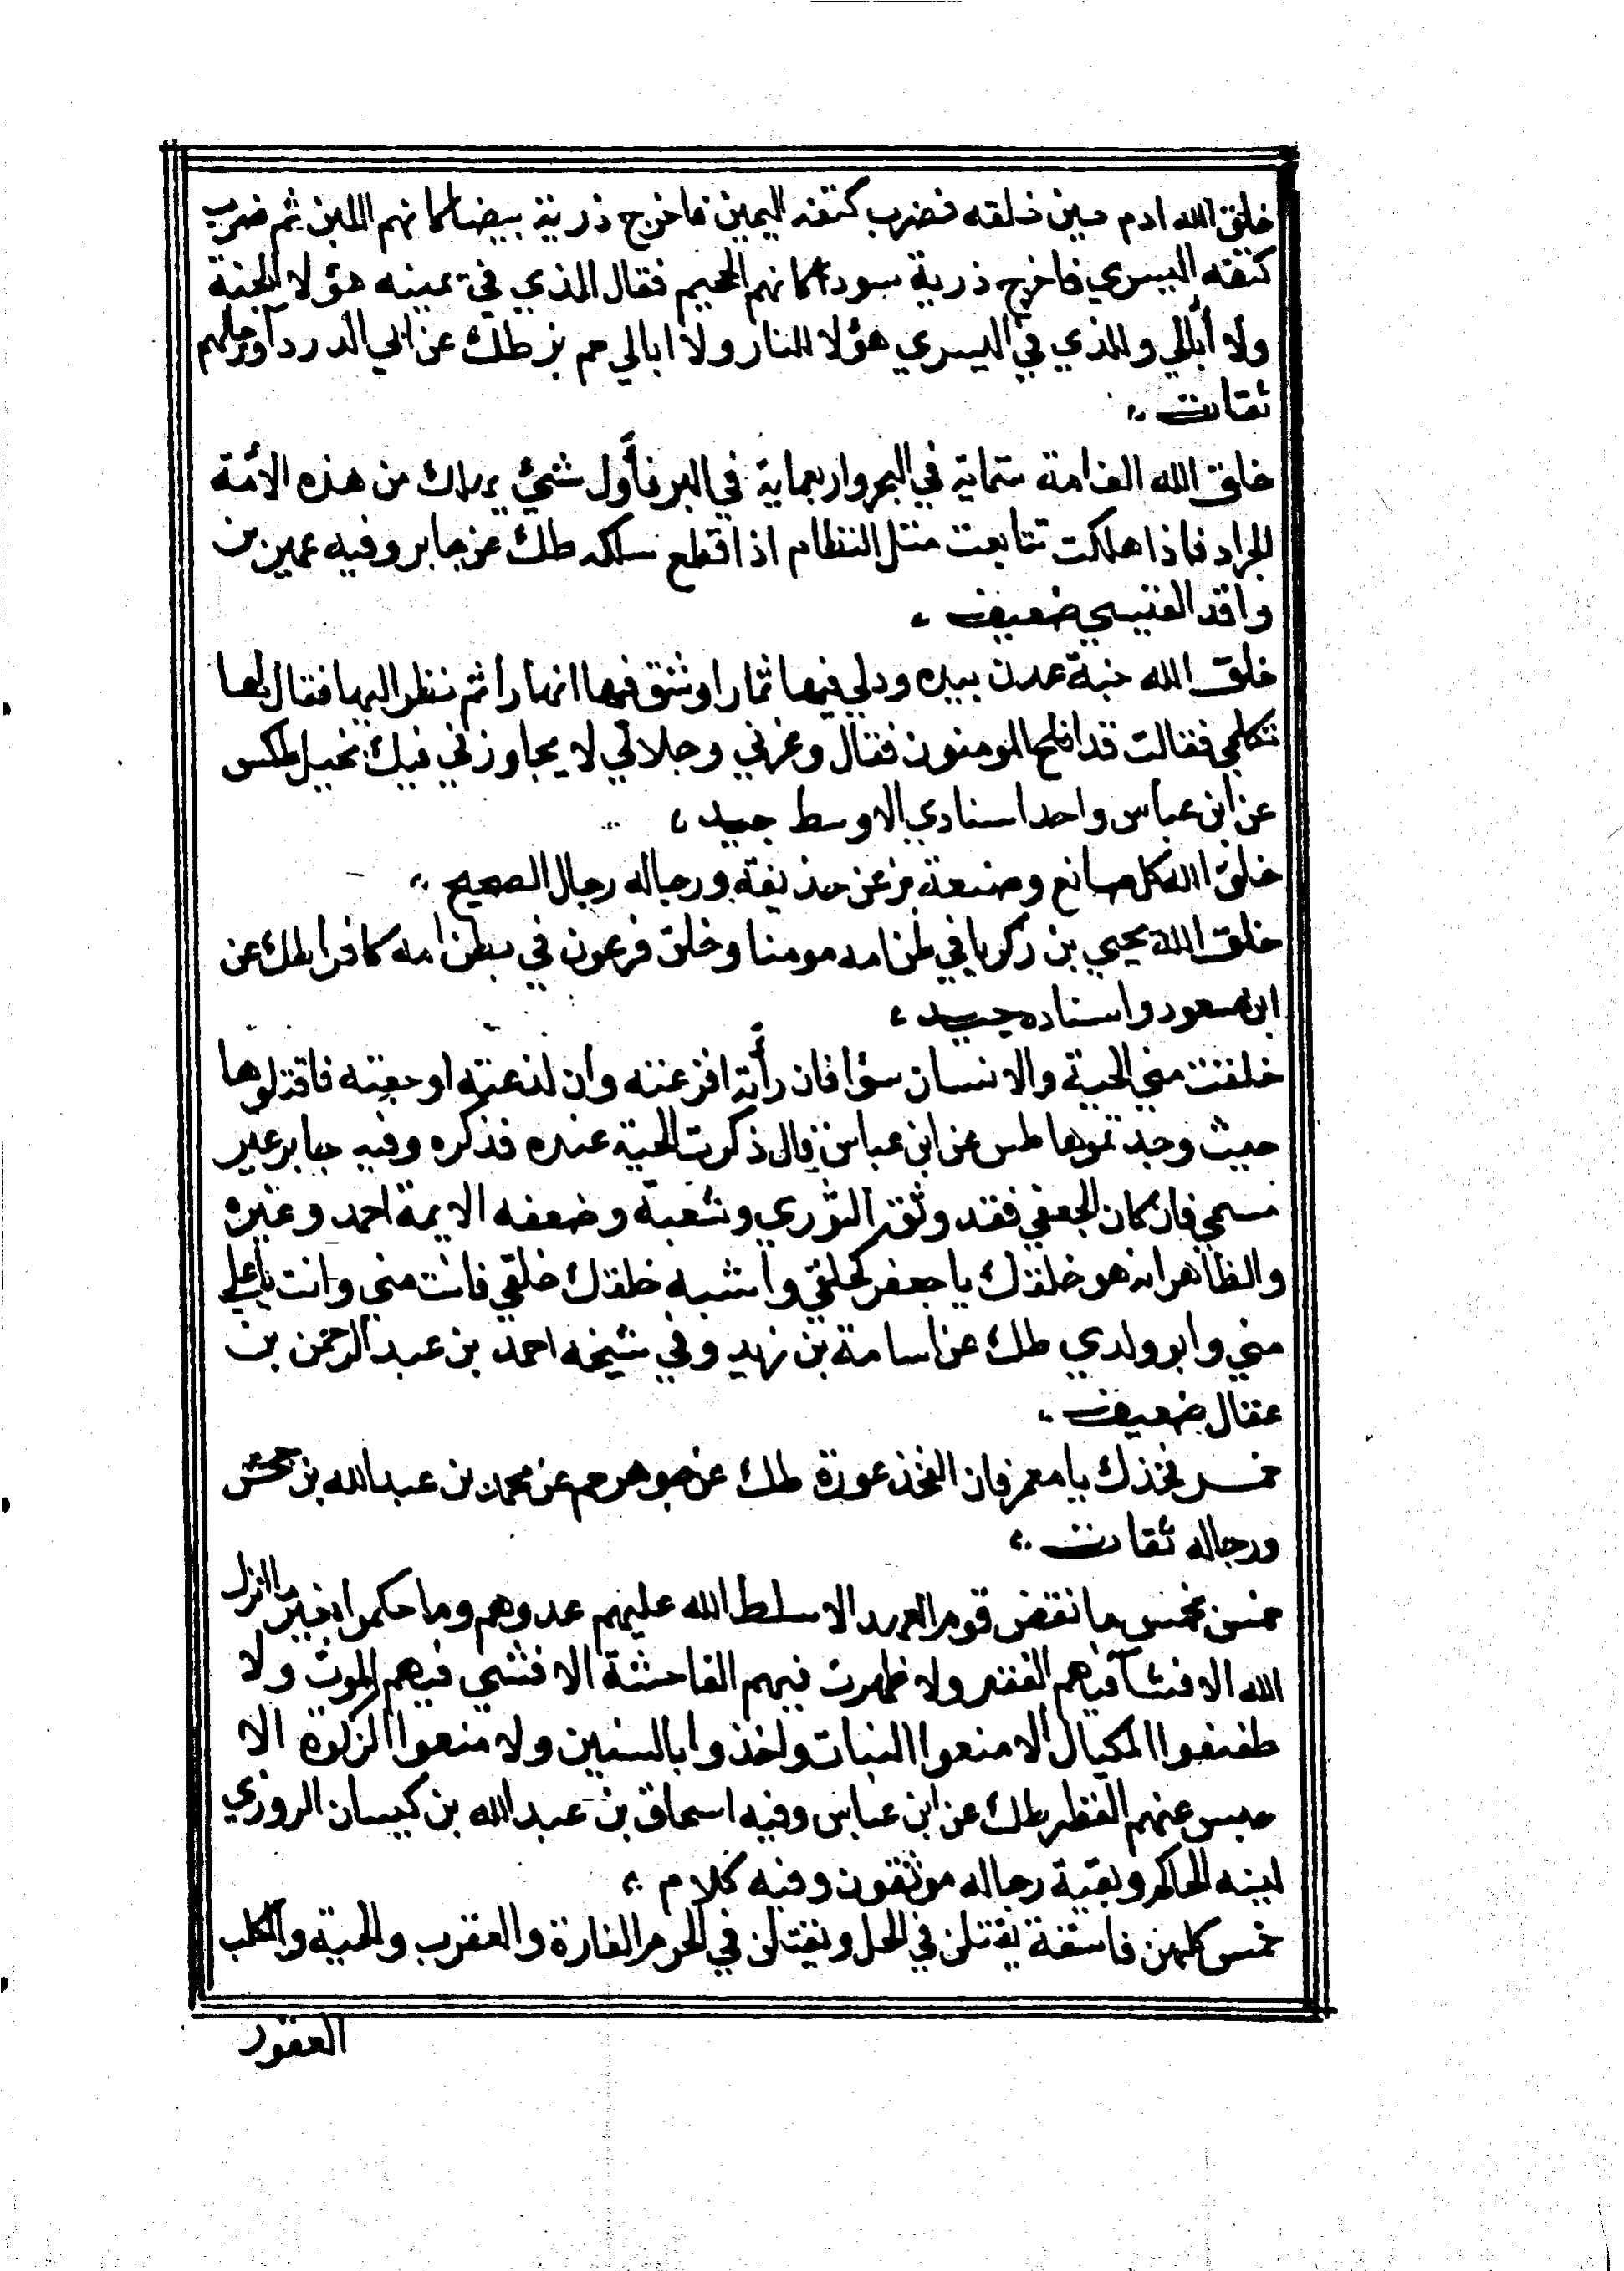 خلق الله ادم حين خلقه فضرب كتفه اليمين فاخرج ذرية بيضا كانهم اللبن ثم ضرب
كتفه اليسري فاخرج ذرية سوداء كانهم الحميم فقال الذي في يمينه هؤلا للجنة
ولا أبالي وللذي في اليسري هؤلا للنار ولا ابالي حم بز طك عن ابي الدرداء ورجالهم
ثقات
خلق الله الف امة ستماية في البحر واربعماية في البر فأول شيئ يهلك من هذه الأمة
الجراد فاذا هلكت تتابعت مثل النظام اذا قطع سلكه طك عن جابر وفيه عمير بن
واقد القيسي ضعيف
خلق الله جنة عدن بيده ودلي فيها ثمارا وشق فيها انهارا ثم نظر اليها فقال لها
تكلمي فقالت قد افلح المومنون فقال وعزتي وجلالي لا يجاوزني فيك بخيل طكس
عن ابن عباس واحد اسنادي الاوسط جيد
خلق الله كل صانع وصنعة بز عن حذيفة ورجاله رجال الصحيح
خلق الله يحيي بن زكريا في بطن امه مومنا وخلق فرعون في بطن امه كافرا طك عن
ابن مسعود واسناده جيد
خلقت مني الحية والانسان سؤا فان رأته افزعته وان لذعته اوجعته فاقتلوها
حيث وجدتموها طس عن ابن عباس قال ذكرت الحية عنده فذكره وفيه جابر غير
مسمي فان كان الجعفي فقد وثقه الثوري وشعبة وضعفه الايمة احمد وغيره
والظاهر انه هو خلقك يا جعفر كخلقي واشبه خلقك خلقي فانت مني وانت يا علي
مني وابو ولدي طك عن اسامة بن زيد وفي شيخه احمد بن عبد الرحمن بن
عقال ضعيف
خمر فخذك يا معمر فان الفخذ عورة طك عن جوهر حم عن محمد بن عبد الله بن جحش
ورجاله ثقات
خمس بخمس ما نقض قوم العهد الا سلط الله عليهم عدوهم وما حكموا بغير ما انزل
الله الا فشا فيهم الفقر ولا ظهرت فيهم الفاحشة الا فشي فيهم الموت ولا
طففوا المكيال الا منعوا النبات واخذوا بالسنين ولا منعوا الزكوة الا
حبس عنهم القطر طك عن ابن عباس وفيه اسحاق بن عبد الله بن كيسان المروزي
لينه الحاكم وبقية رجاله موثقون وفيه كلام
خمس كلهن فاسقة يقتلن في الحل ويقتلن في الحرم الفارة والعقرب والحية والكلب
العقور